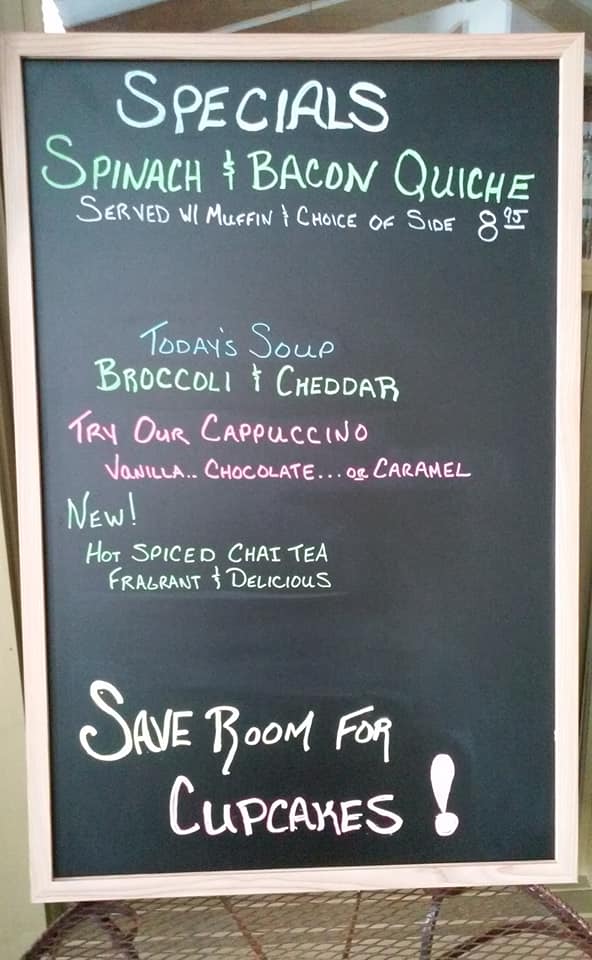 SPECIALS
SPINACH & BACON QUICHE
SERVED W/ MUFFIN & CHOICE OF SIDE 8.95
TODAY'S SOUP
BROCCOLI & CHEDDAR
TRY OUR CAPPUCCINO
VANILLA.. CHOCOLATE... OR CARAMEL
NEW!
HOT SPICED CHAI TEA
FRAGRANT & DELICIOUS
SAVE ROOM FOR
CUPCAKES!